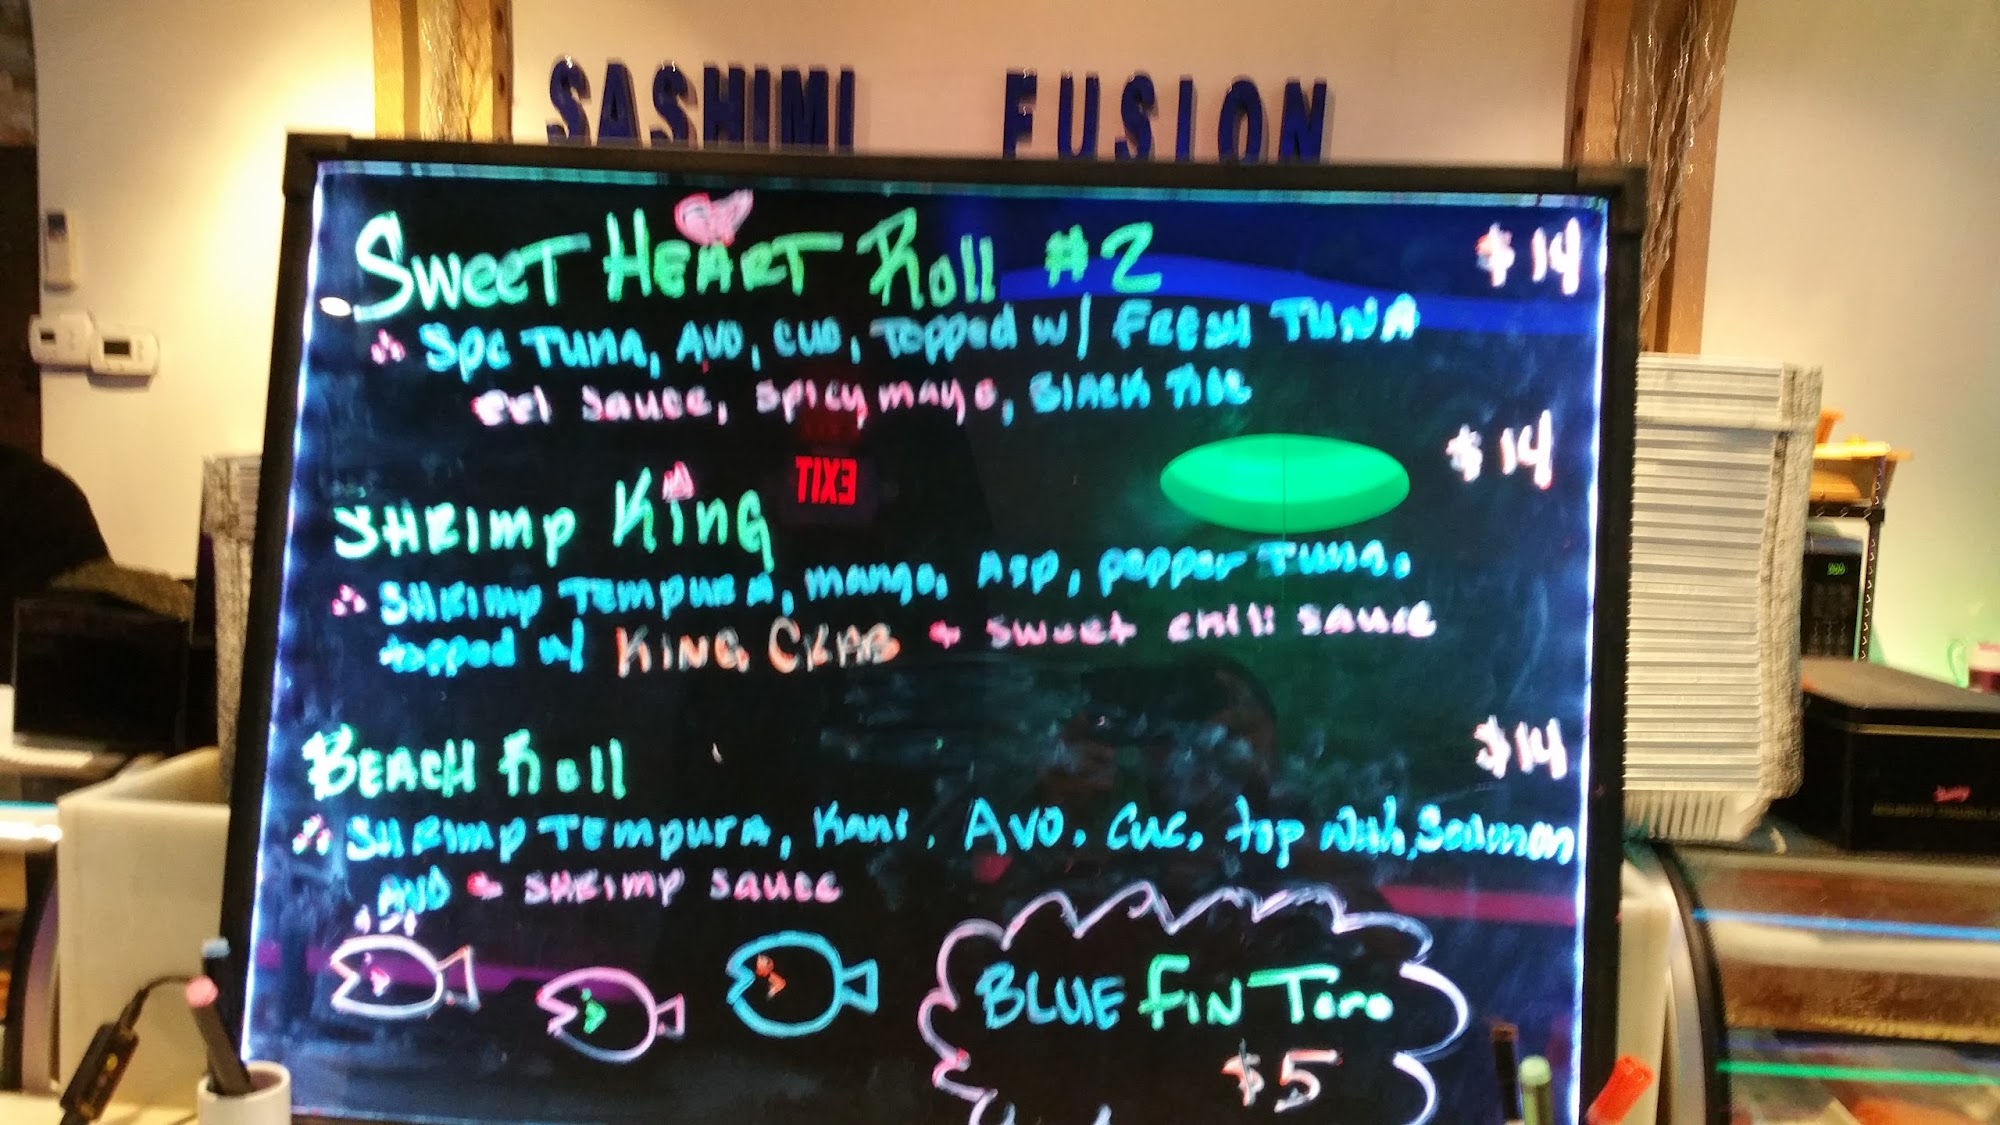 SASHIMI FUSION
SWEET HEART Roll #2 $14
Spc TUNA, AVO, CUC, Topped w/ FRESH TUNA
eel sauce, spicy mayo, Black Rice
$14
SHRIMP KING
EXIT
SHRIMP TEMPURA, mango, Asp, pepper TUNA,
topped w/ KING CRAB + sweet chili sauce
BEACH Roll $14
SHRIMP TEMPURA, Kani, AVO, CUC, top with, Salmon
AVO + SHRIMP sauce
BLUE FIN Toro
$5